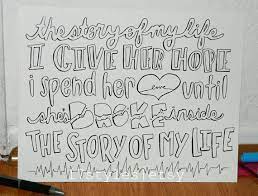 the story of my life
I GIVE HER HOPE
i spend her love until
she's BROKE inside
THE STORY OF MY LIFE